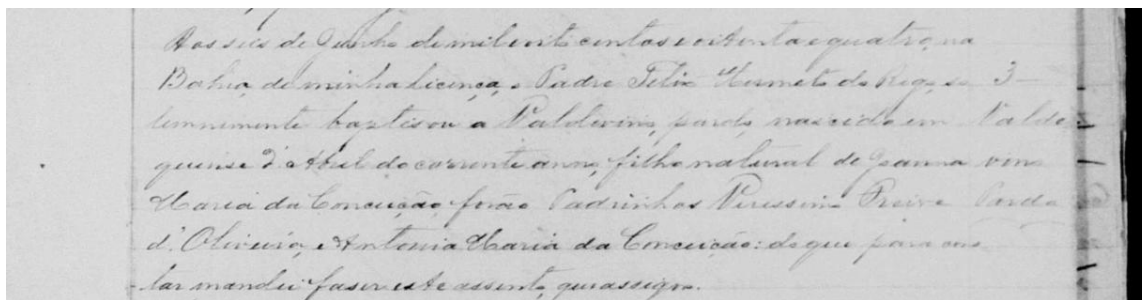 Aos seis de Junho de mil oito centos e oitenta e quatro, na
Bahia, de minha licença, o Padre Felix Hermeto do Rego, so 3-
lemnimente baptisou a Valdivino, pardo, nascido em Valde
quinse d'Abril do corrente anno, filho natural de Joanna vino
Maria da Conceição, forão Padrinhos Verissimo Freire Pardo
d'Oliveira, e Antonia Maria da Conceição: do que para cons
tar mandei faser este assento, que assigno.